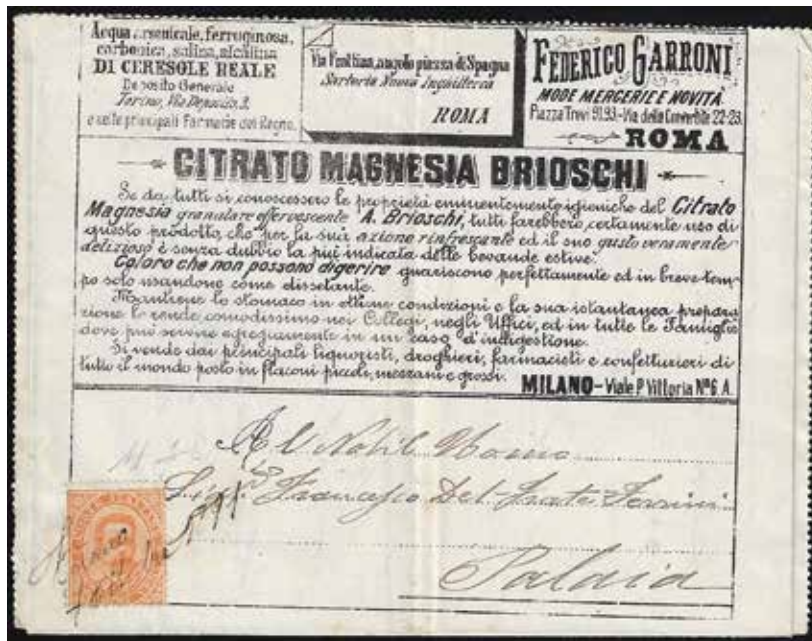 Acqua arsenicale, ferruginosa,
carbonica, salina, alcalina
DI CERESOLE REALE
Deposito Generale
Torino, Via Deposito, 3,
e nelle principali Farmacie del Regno.
Via Frattina, angolo piazza di Spagna
Sartoria Nuova Inghilterra
ROMA
FEDERICO GARRONI
MODE MERCERIE E NOVITÀ
Piazza Trevi 91.93-Via delle Convertite 22-23.
ROMA
CITRATO MAGNESIA BRIOSCHI
Se da tutti si conoscessero le proprietà eminentemente igieniche del Citrato
Magnesia granulare effervescente A. Brioschi, tutti farebbero certamente uso di
questo prodotto, che per la sua azione rinfrescante ed il suo gusto veramente
delizioso è senza dubbio la più indicata delle bevande estive.
Coloro che non possono digerire guariscono perfettamente ed in breve tem-
po solo usandone come dissetante.
Mantiene lo stomaco in ottime condizioni e la sua istantanea prepara
zione lo rende comodissimo nei Collegi, negli Uffici, ed in tutte le Famiglie
dove può servire egregiamente in un caso d'indigestione.
Si vende dai principali liquoristi, droghieri, farmacisti e confetturieri di
tutto il mondo posto in flaconi piccoli, mezzani e grossi.
MILANO-Viale P. Vittoria Nº 6 A.
Al Nobil Uomo
Francesco Del
Palaia